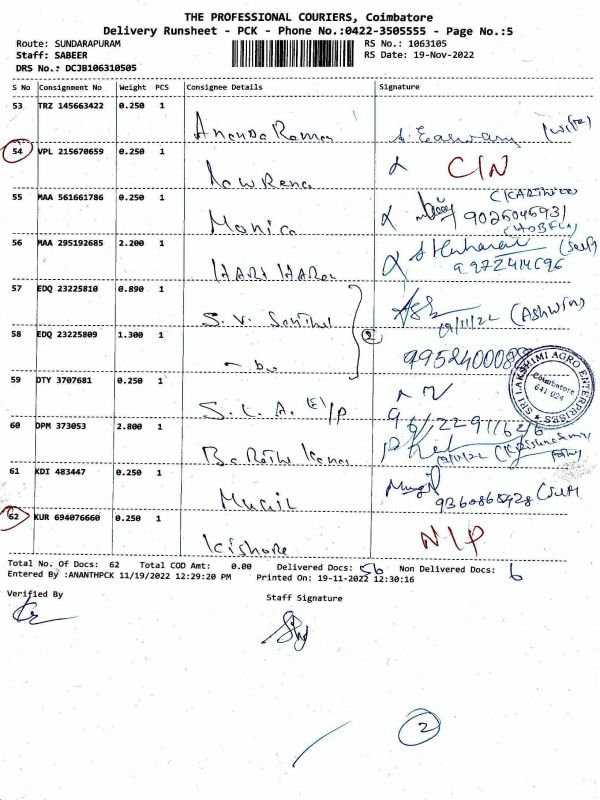 THE PROFESSIONAL COURIERS, Coimbatore
Delivery Runsheet - PCK - Phone No.:0422-3505555 - Page No.:5
Route: SUNDARAPURAM
RS No.: 1063105
Staff: SABEER
RS Date: 19-Nov-2022
DRS No.: DCJB106310505
S No Consignment No Weight PCS Consignee Details Signature
53 TRZ 145663422 0.250 1
Ananda Raman S. Easwary (Wife)
54 VPL 215670659 0.250 1
Lawrena C/N
55 MAA 561661786 0.250 1
Monica
56 MAA 295192685 2.200 1
HARI HARan (Self)
57 EDQ 23225810 0.890 1
S. V. Senthil 19/11/22 (Ashwin)
58 EDQ 23225809 1.300 1
2
59 DTY 3707681 0.250 1
S. L. A. E/P
SRI LAKSHIMI AGRO ENTERPRISES
Coimbatore
641 024
60 DPM 373053 2.800 1
61 KDI 483447 0.250 1
Mugil 9360865928 (Self)
62 KUR 694076660 0.250 1
Kishore N/P
Total No. Of Docs: 62 Total COD Amt: 0.00 Delivered Docs: 56 Non Delivered Docs: 6
Entered By :ANANTHPCK 11/19/2022 12:29:20 PM Printed On: 19-11-2022 12:30:16
Verified By
Staff Signature
2